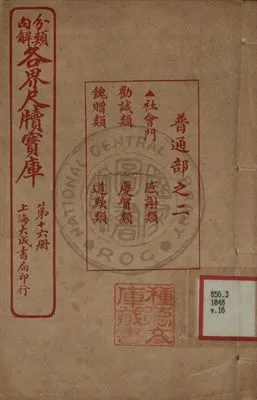 分類
內解
各界尺牘寶庫
第十六冊
上海大成書局印行
普通部之二
▲社會門
感謝類
勸誡類
慶賀類
餽贈類
道歉類
NATIONAL CENTRAL
ROC
856.3
1048
v.16